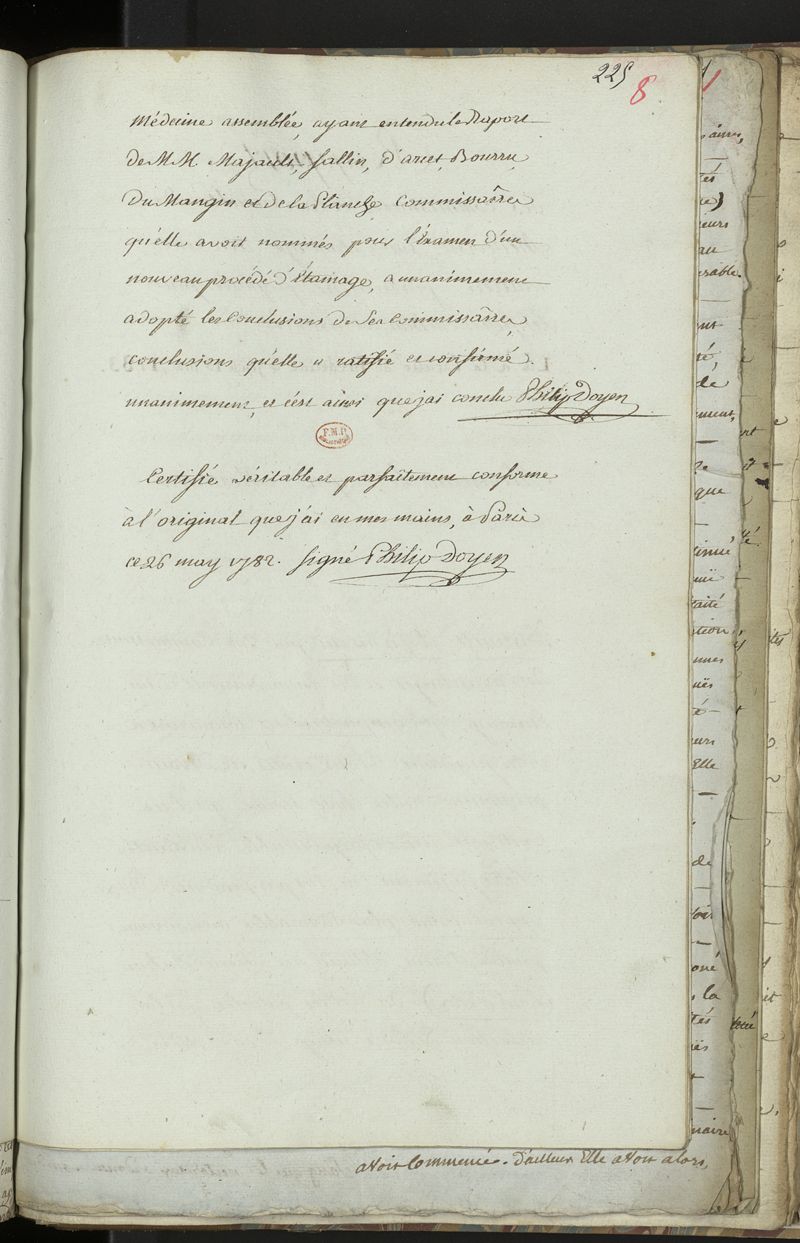 225
8
Médecine assemblée, ayant entendu le Raport
de MM. Majault, Sallin, d'arcet, Bourru,
Du Mangin et de la Planche Commissaires
qu'elle avoit nommés pour l'Examen d'un
nouveau procédé d'Etamage, a unanimement
adopté les Conclusions de Ses Commissaires,
conclusions qu'elle a ratifié et confirmé
unanimement, et c'est ainsi que j'ai conclu Philip Doyen
F.M.P.
Certifié véritable et parfaitement conforme
à l'original que j'ai en mes mains, à Paris
ce 26 may 1782. signé Philip Doyen
avoit Commencé. d'ailleurs Elle avoit alors,